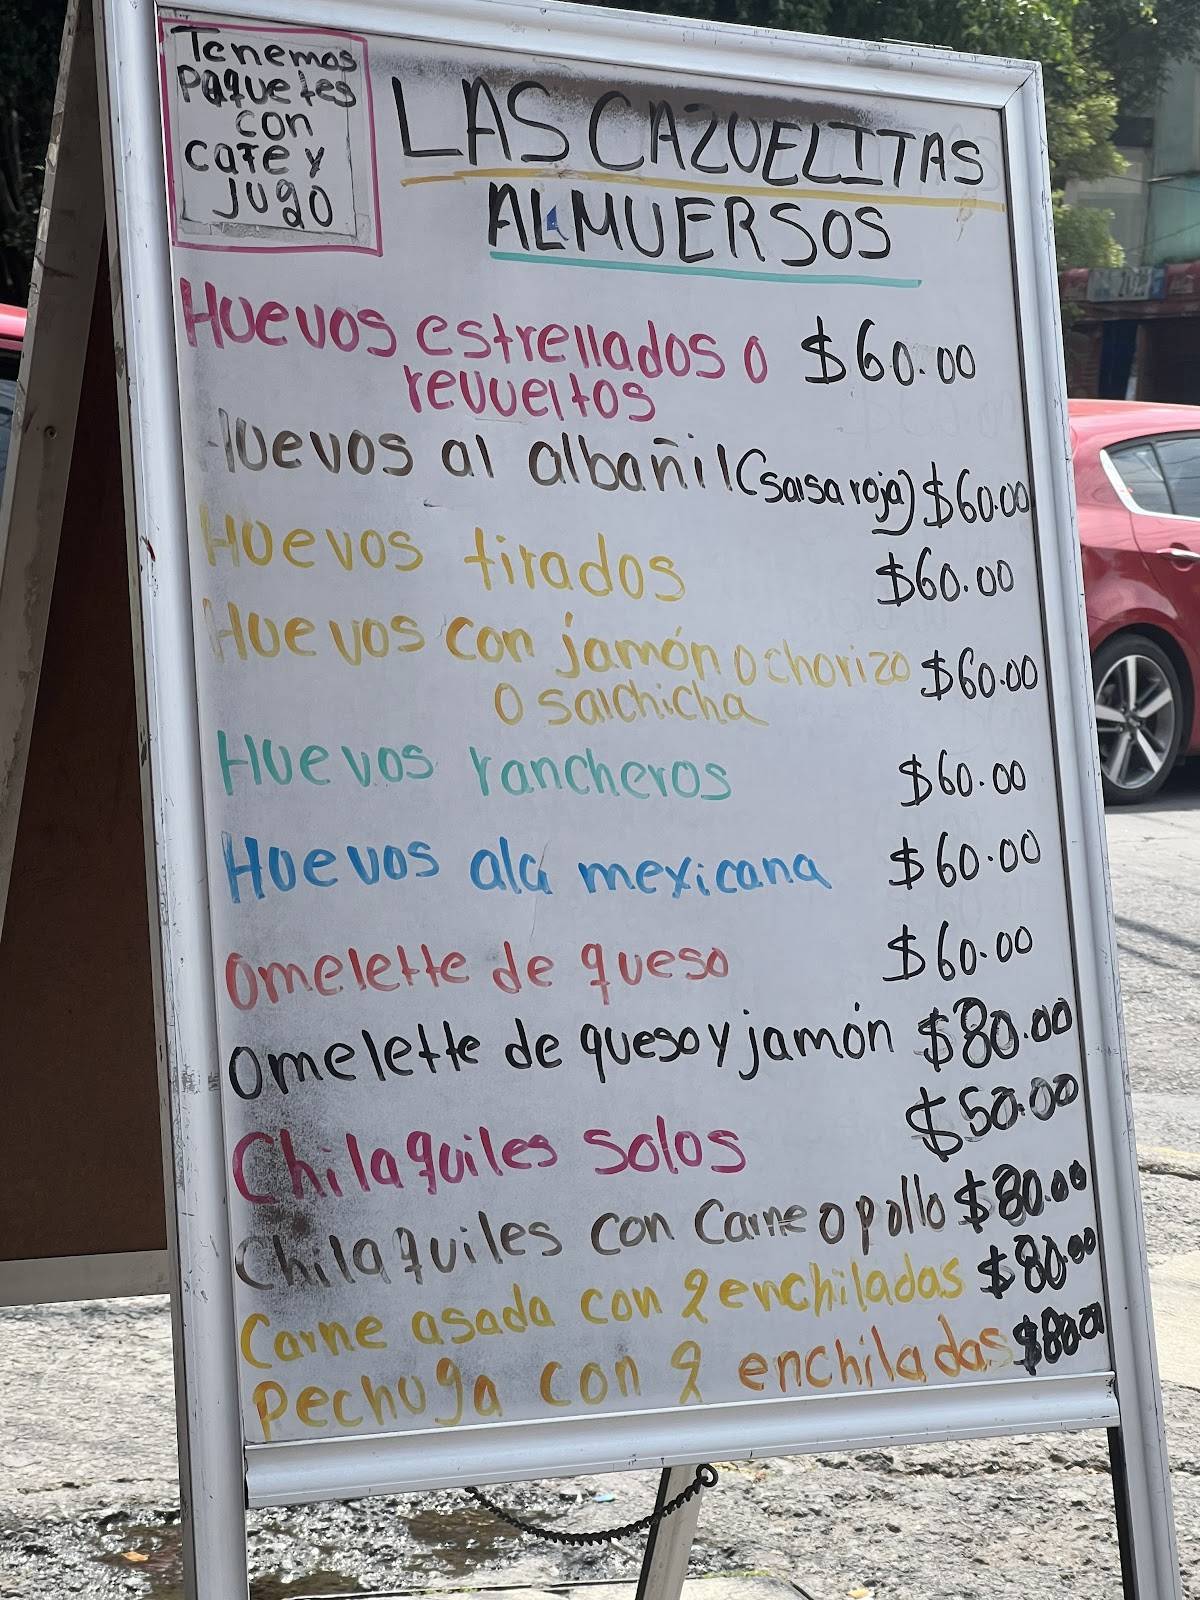 Tenemos
Paquetes
con
cafe y
jugo
LAS CAZUELITAS
ALMUERSOS
Huevos estrellados o $60.00
revueltos
Huevos al albañil (salsa roja) $60.00
Huevos tirados $60.00
Huevos con jamón o chorizo $60.00
o salchicha
Huevos rancheros $60.00
Huevos ala mexicana $60.00
Omelette de queso $60.00
Omelette de queso y jamón $80.00
Chilaquiles solos $50.00
Chilaquiles con Carne o pollo $80.00
Carne asada con 2 enchiladas $80.00
Pechuga con 2 enchiladas $80.00